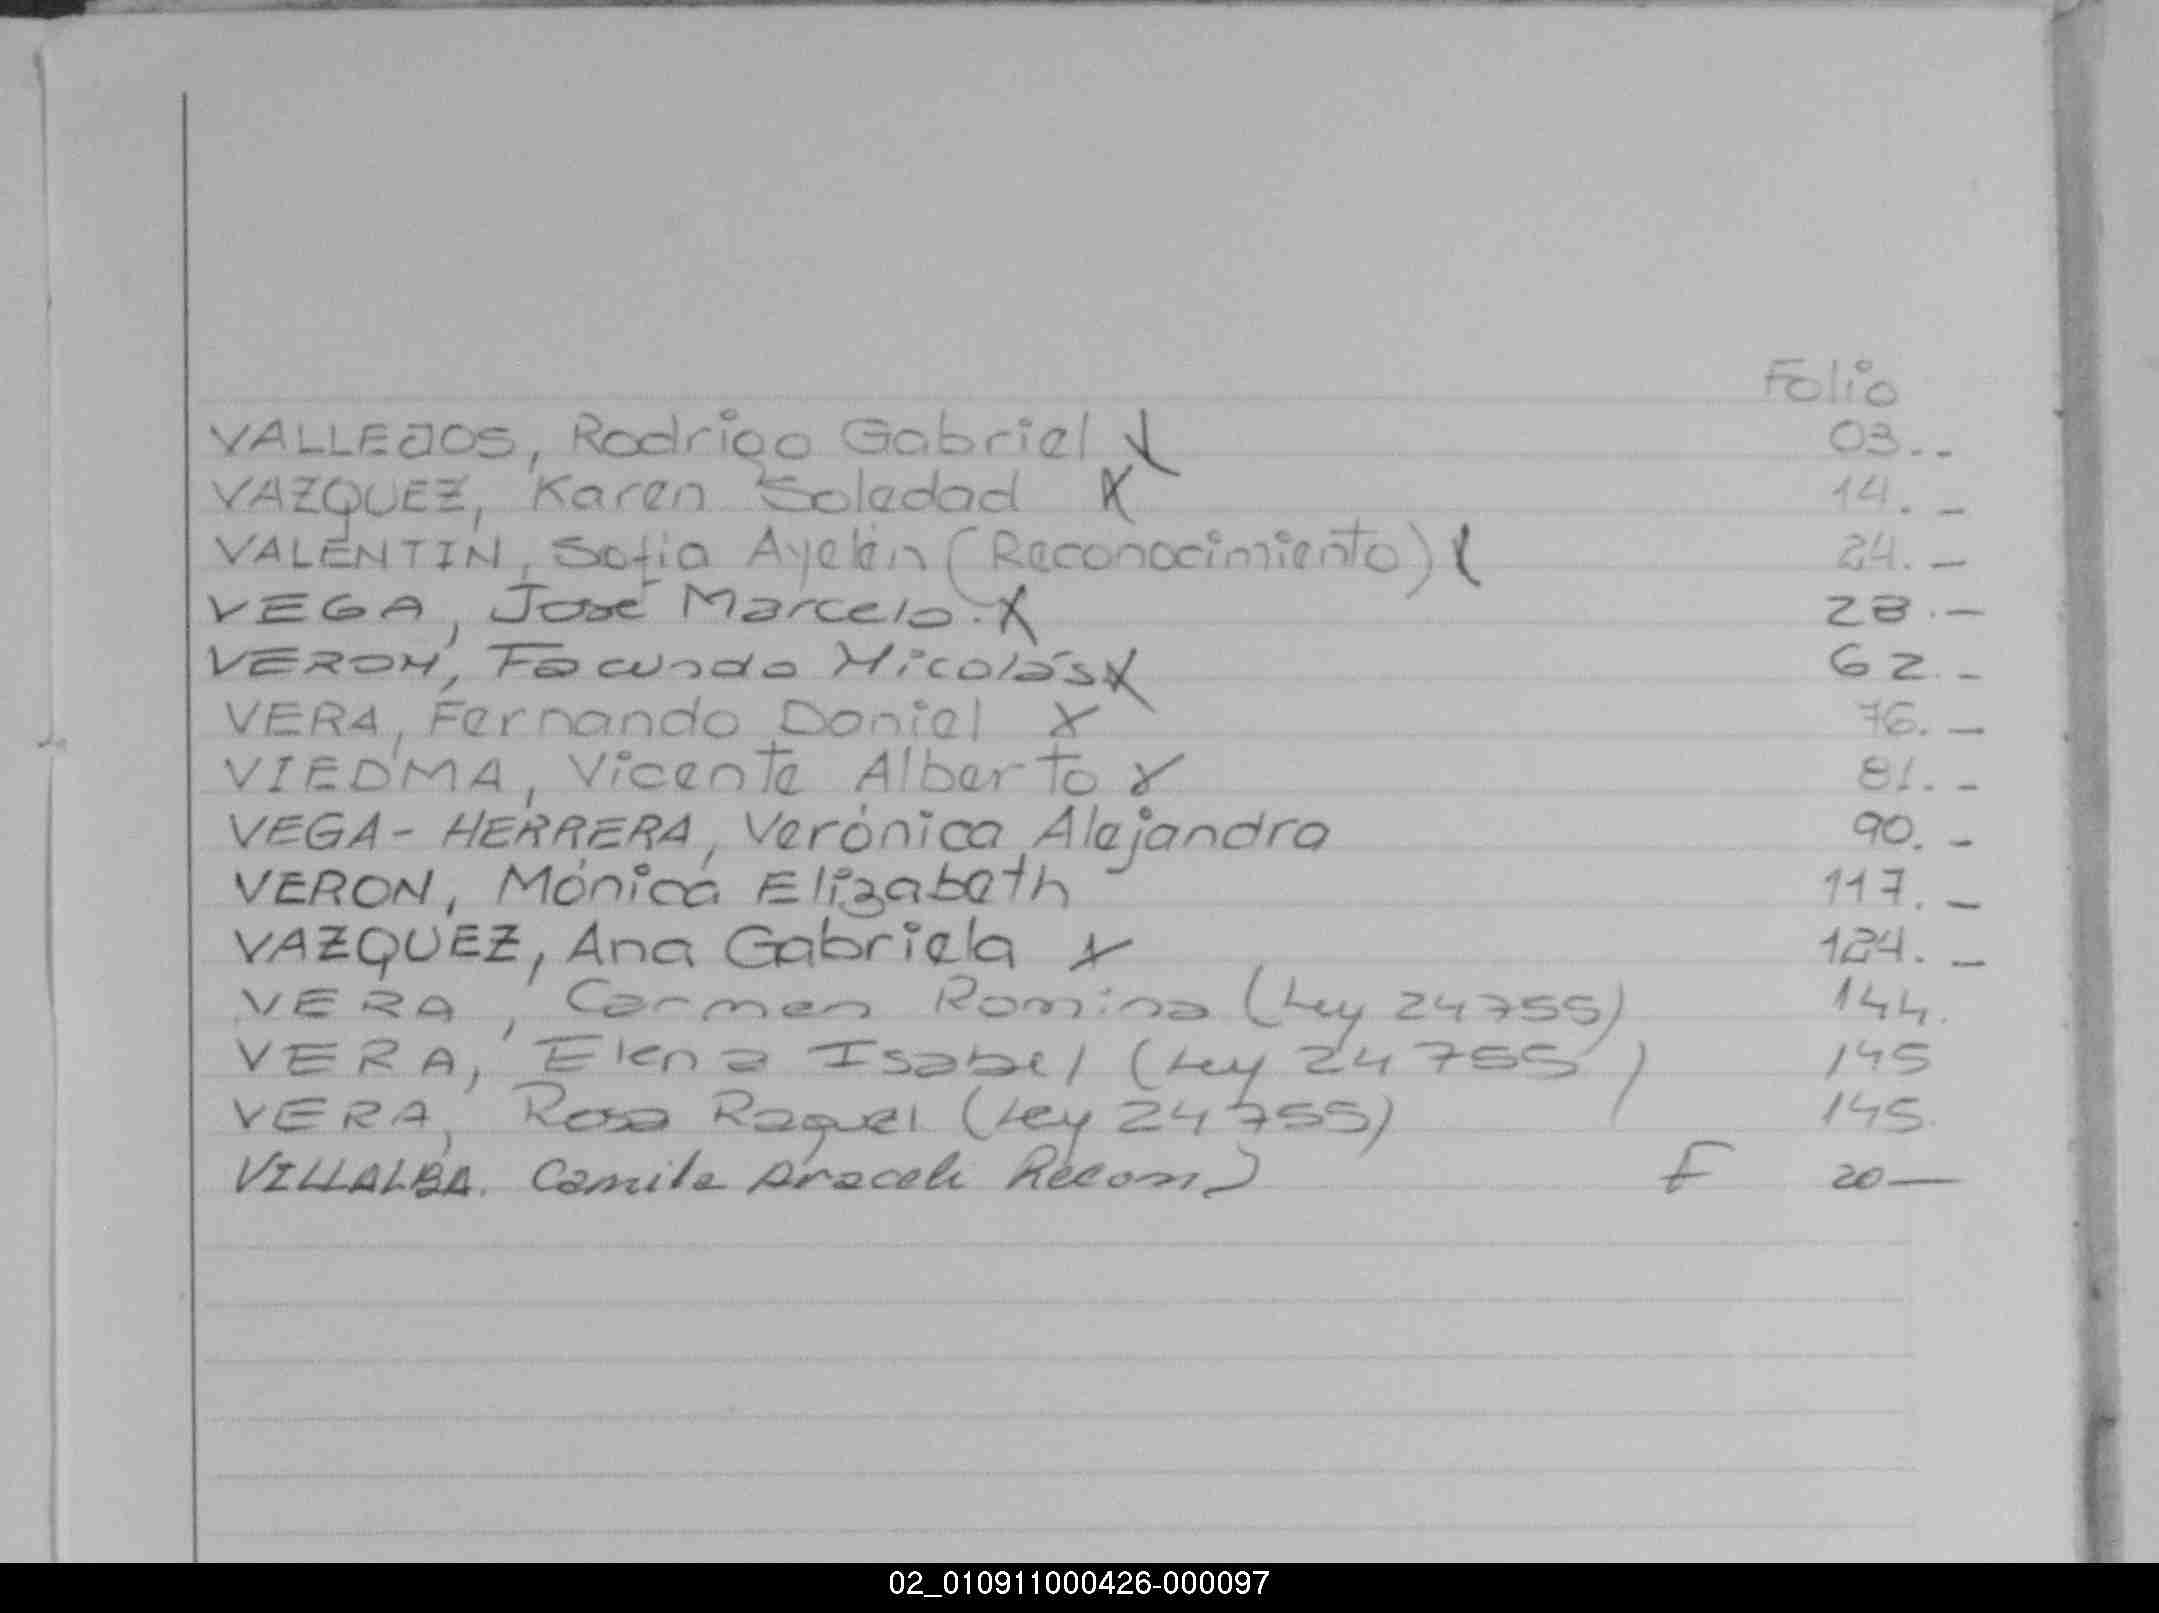 Folio
VALLEJOS, Rodrigo Gabriel X 03.-
VAZQUEZ, Karen Soledad X 14.-
VALENTIN, Sofia Ayelén (Reconocimiento) 24.-
VEGA, José Marcelo. X 28.-
VERON, Facundo Nicolás X 62.-
VERA, Fernando Daniel X 76.-
VIEDMA, Vicente Alberto X 81.-
VEGA-HERRERA, Verónica Alejandra 90.-
VERON, Mónica Elizabeth 117.-
VAZQUEZ, Ana Gabriela X 124.-
VERA, Carmen Romina (Ley 24755) 144.
VERA, Elena Isabel (Ley 24755) 145
VERA, Rosa Raquel (Ley 24755) 145.
VILLALBA. Camila Araceli Recon) F 20—
02_010911000426-000097